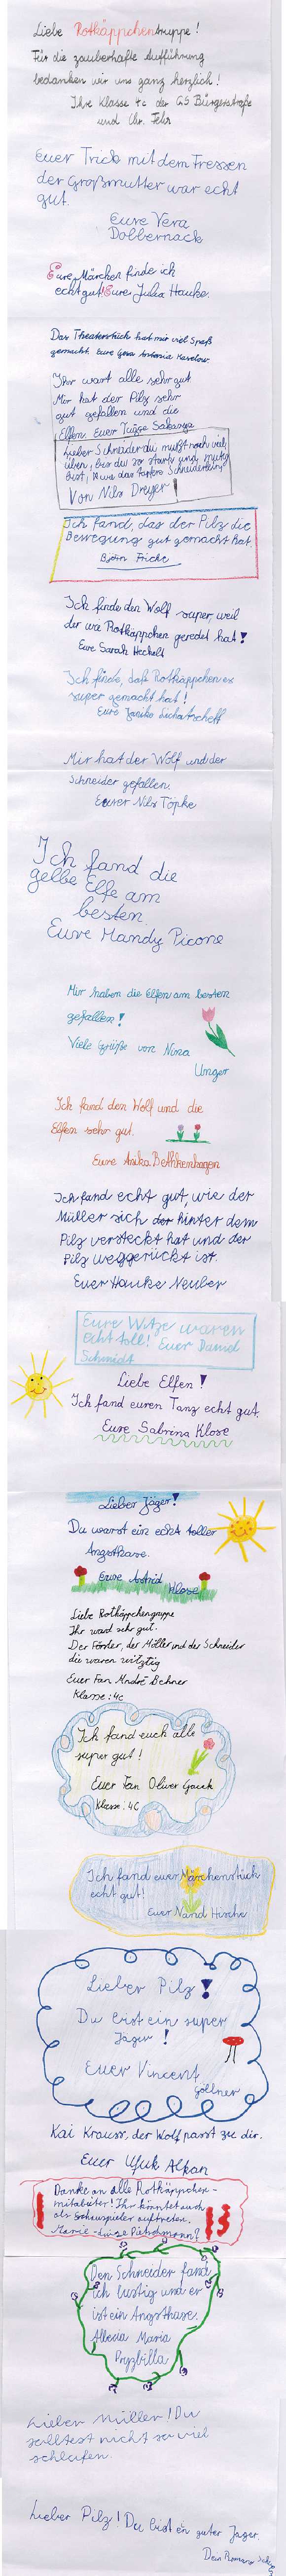 Liebe Rotkäppchentruppe!
Für die zauberhafte Aufführung
bedanken wir uns ganz herzlich!
Ihre Klasse 4c der GS Bürgerstraße
und Chr. Fehr
Euer Trick mit dem Fressen
der Großmutter war echt
gut.
Eure Vera
Dobbernack
Eure Märchen finde ich
echt gut! Eure Julia Hauke.
Das Theaterstück hat mir viel Spaß
gemacht. Eure Gesa Antonia
Ihr wart alle sehr gut
Mir hat der Pilz sehr
gut gefallen und die
Elfen Euer
Lieber Schneider du mußt noch viel
üben, bis du so stark und mutig
bist, wie das tapfere Schneiderlein,
Von Nils Dreyer
Ich fand, das der Pilz die
Bewegung gut gemacht hat
Björn Fricke
Ich finde den Wolf super, weil
der wie Rotkäppchen geredet hat!
Eure Sarah Heckelt
Ich finde, daß Rotkäppchen es
super gemacht hat!
Eure Janika
Mir hat der Wolf und der
Schneider gefallen.
Eurer Nils Töpke
Ich fand die
gelbe Elfe am
besten.
Eure Mandy Picone
Mir haben die Elfen am besten
gefallen!
Viele Grüße von Nina
Unger
Ich fand den Wolf und die
Elfen sehr gut.
Eure Anika Bethkenhagen
Ich fand echt gut, wie der
Müller sich hinter dem
Pilz versteckt hat und der
Pilz weggerückt ist.
Euer Hauke Neuber
Eure Witze waren
echt toll! Euer Daniel
Schmidt
Liebe Elfen!
Ich fand euren Tanz echt gut.
Eure Sabrina Klose
Lieber Jäger!
Du warst ein echt toller
Angsthase.
Eure Astrid
Klose
Liebe Rotkäppchengruppe
Ihr ward sehr gut.
Der Förster, der Müller und der Schneider
die waren witztig
Euer Fan André Behner
Klasse: 4c
Ich fand euch alle
super gut!
Euer Fan Oliver Gauk
Klasse: 4C
Ich fand euer Märchenstück
echt gut!
Euer Nand Hesche
Lieber Pilz!
Du bist ein super
Jäger!
Euer Vincent
Göllner
Kai Krauss, der Wolf passt zu dir.
Euer Ufuk Alkan
Danke an alle Rotkäppchen-
mitarbeiter! Ihr könntet auch
als Schauspieler auftreten.
Marie-Luise
Den Schneider fand
ich lustig und er
ist ein Angsthase.
Maria
Przybilla
Lieber Müller! Du
solltest nicht so viel
schlafen.
Lieber Pilz! Du bist ein guter Jäger.
Dein Roman